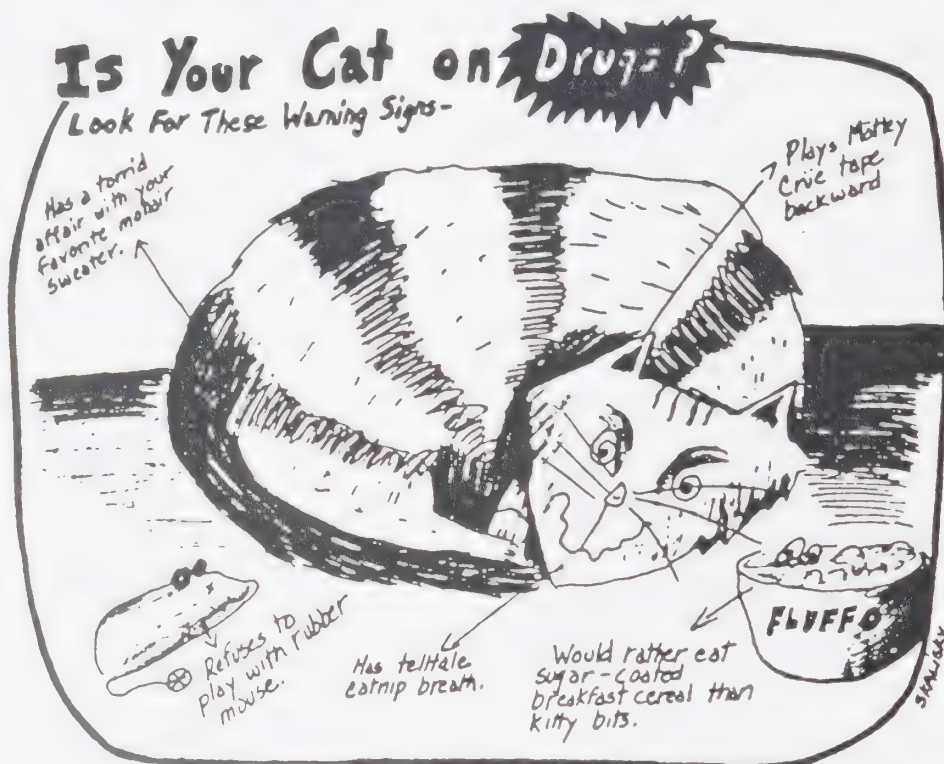 Is Your Cat on Drugs?
Look For These Warning Signs-
Has a torrid
affair with your
favorite mohair
sweater.
Plays Motley
Crüe tape
backward
Refuses to
play with rubber
mouse.
Has telltale
catnip breath.
Would rather eat
sugar-coated
breakfast cereal than
kitty bits.
FLUFFO